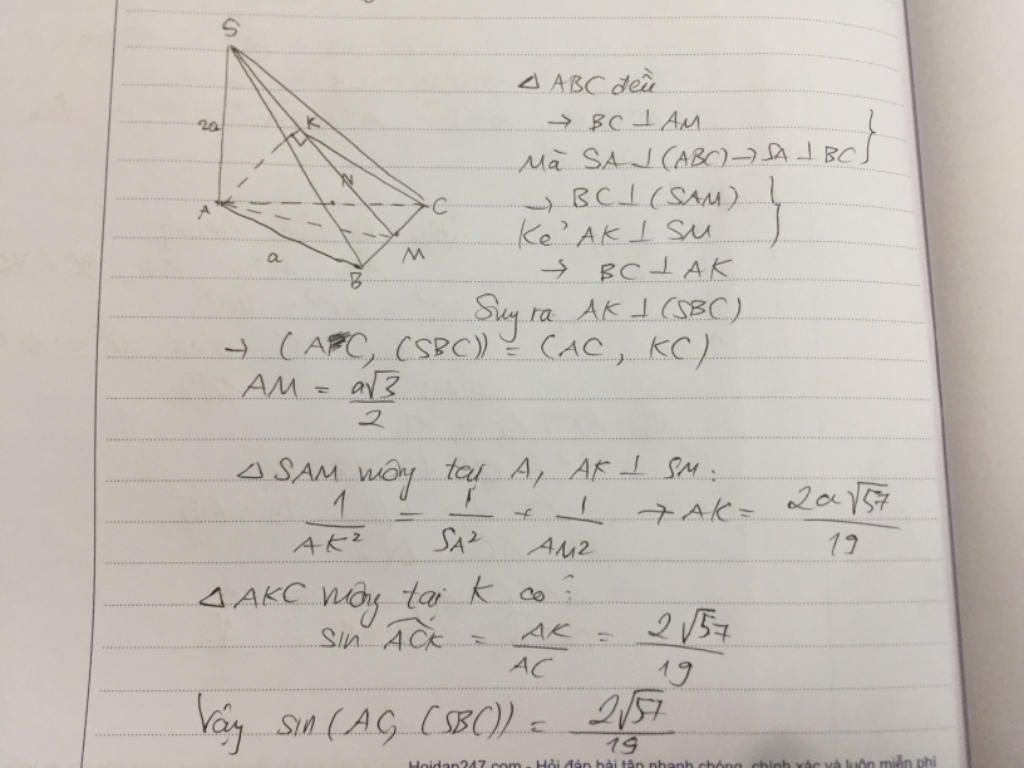 S
2a
K
N
A
C
M
a
B
△ ABC đều
→ BC ⊥ AM
Mà SA ⊥ (ABC) → SA ⊥ BC
→ BC ⊥ (SAM)
Kẻ AK ⊥ SM
→ BC ⊥ AK
Suy ra AK ⊥ (SBC)
→ (AC, (SBC)) = (AC, KC)
AM = a√3/2
△ SAM vuông tại A, AK ⊥ SM:
1/AK² = 1/SA² + 1/AM² → AK = 2a√57/19
△ AKC vuông tại K có:
sin ACK = AK/AC = 2√57/19
Vậy sin(AC, (SBC)) = 2√57/19
Hoidap247.com - Hỏi đáp bài tập nhanh chóng, chính xác và luôn miễn phí